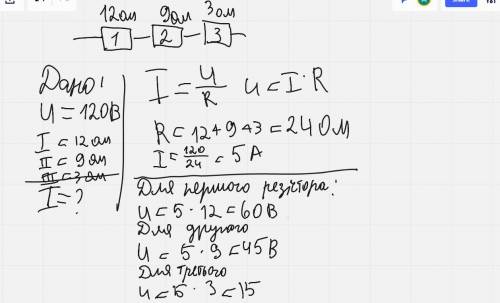 12ом 9ом 3ом
1 2 3
Дано:
U = 120В
I = 12ом
II = 9ом
III = 3ом
I = ?
I = U/R U = I · R
R = 12 + 9 + 3 = 24 Ом
I = 120/24 = 5 А
Для первого резістора:
U = 5 · 12 = 60 В
Для другого
U = 5 · 9 = 45 В
Для третього
U = 5 · 3 = 15